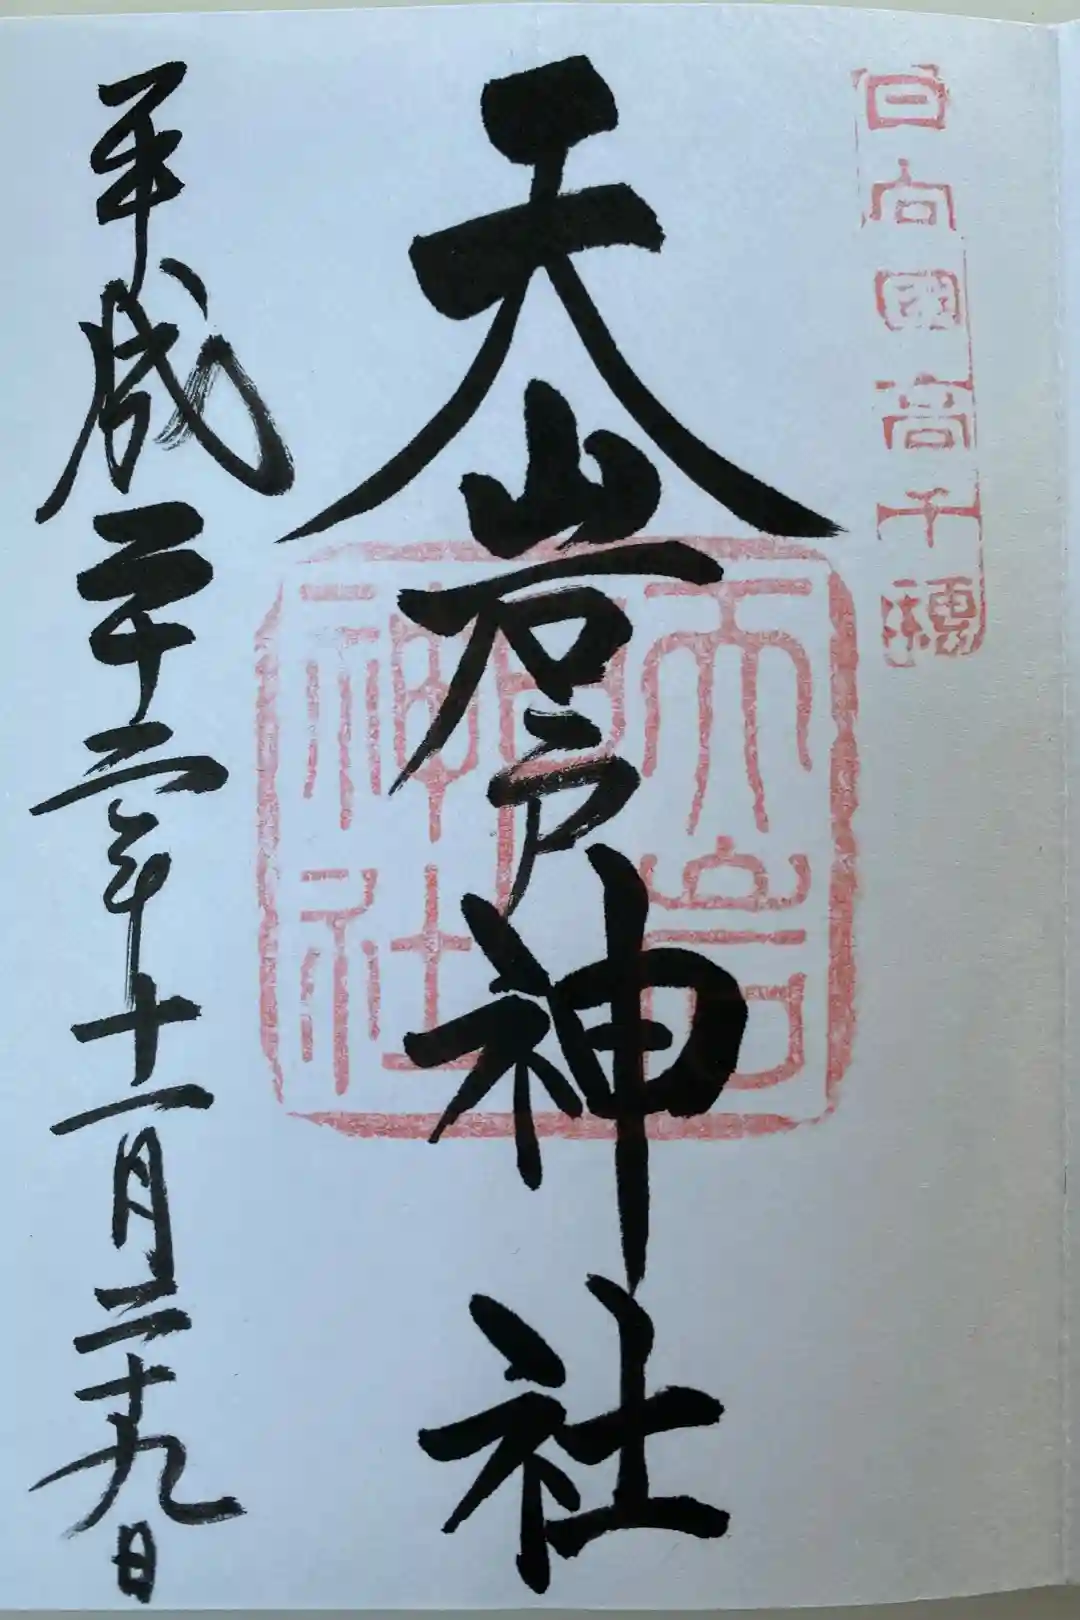 日向國高千穂
天岩戸神社
天岩戸神社
平成二十二年十一月二十九日